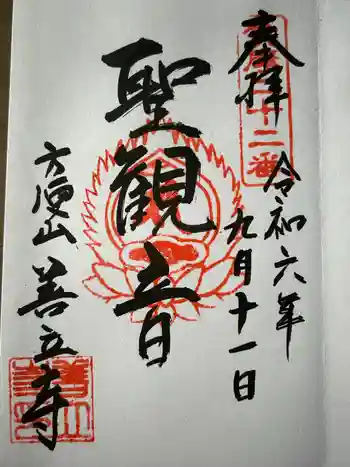 奉拝
令和六年
九月十一日
聖観音
方便山
善立寺